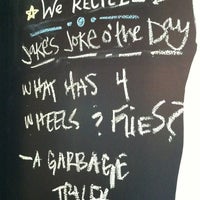 We RECYCLE
Jake's Joke o' the Day
WHAT HAS 4
WHEELS ? FLIES?
-A GARBAGE
TRUCK